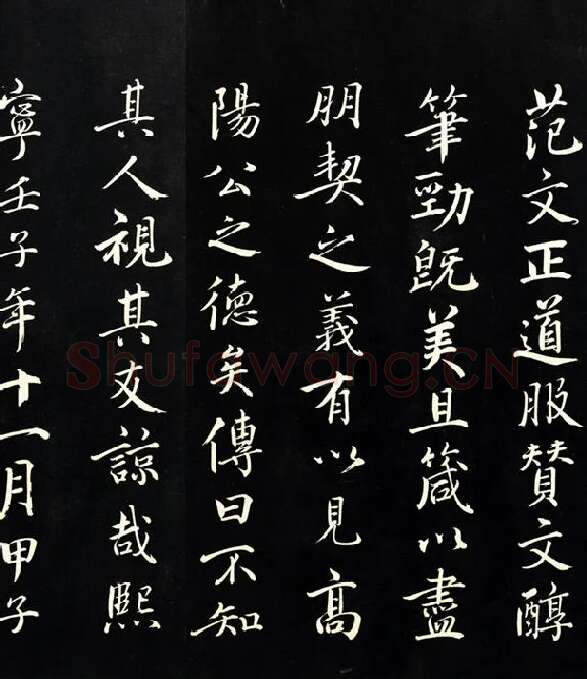 范文正道服赞文醇
筆勁既美且箴以盡
朋契之義有以見高
陽公之德矣傳曰不知
其人視其友諒哉熙
寧壬子年十一月甲子
Shufawang.CN